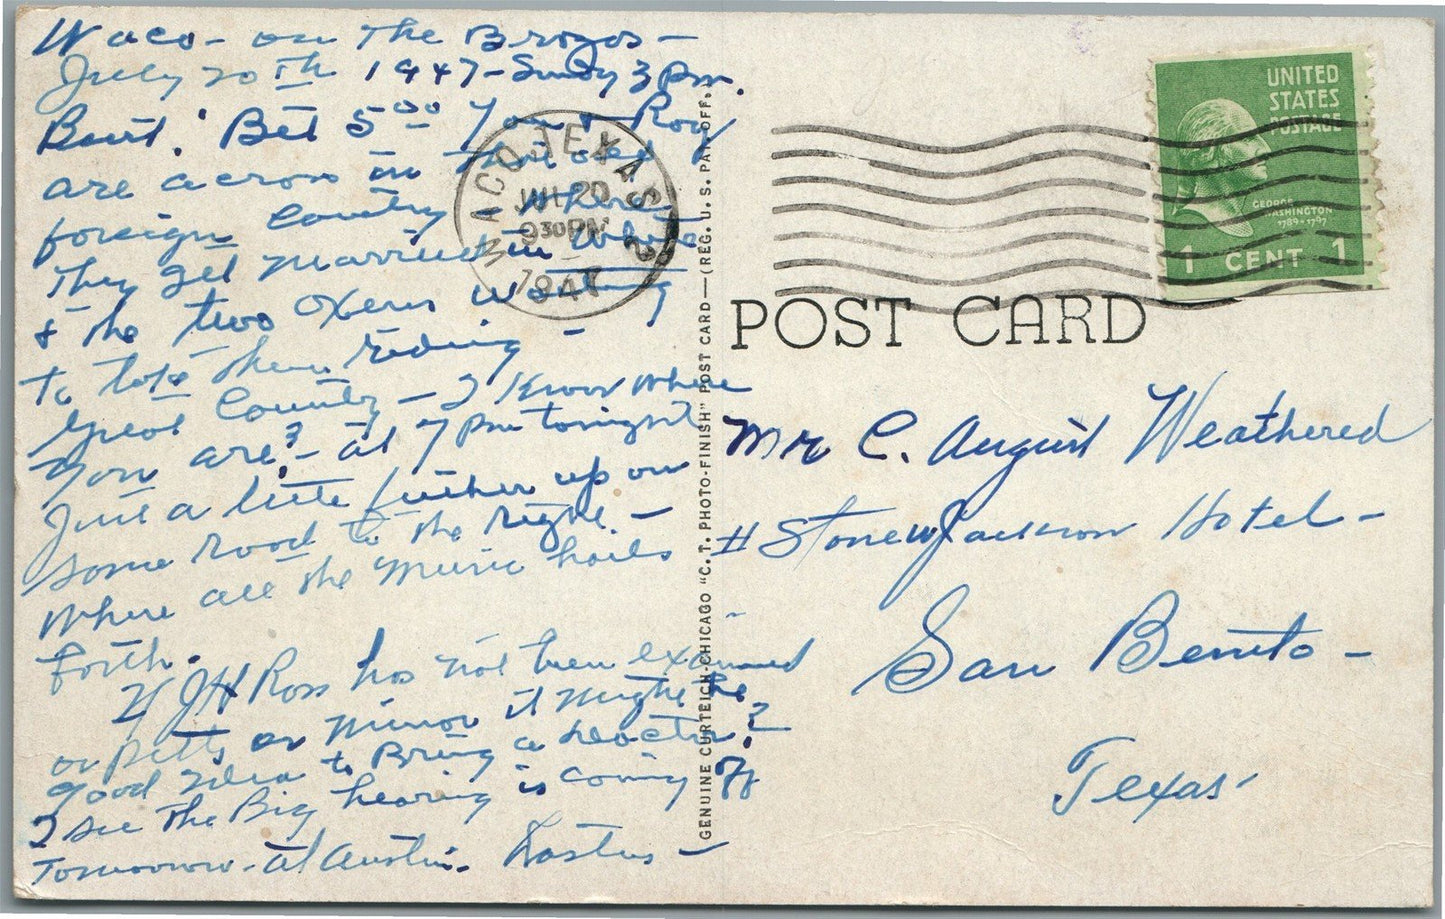 Waco - on The Brozos -
July 20th 1947 - Sunday 3 pm.
Bet 5⁰⁰ You & Roy
are across in that old
foreign Country where
They get married in
& the two Oxens waiting
to tote them riding -
Great Country - I Know Where
You are? - at 7 Pm tonight
Just a little further up on
some road to the right -
Where all the Music hails
forth.
If JH Ross has not been examined
or Petts or Minor it might be
good idea to Bring a Doctor?
I see the Big hearing is coming off
Tomorrow - at Austin.
WACO, TEXAS
JUL 20
9 30 PM
1947
2
GENUINE CURTEICH-CHICAGO "C. T. PHOTO-FINISH" POST CARD—(REG. U. S. PAT. OFF.)
UNITED
STATES
POSTAGE
GEORGE
WASHINGTON
1789-1797
1 CENT 1
POST CARD
Mr C. August Weathered
# Stonewjackson Hotel -
San Benito -
Texas.